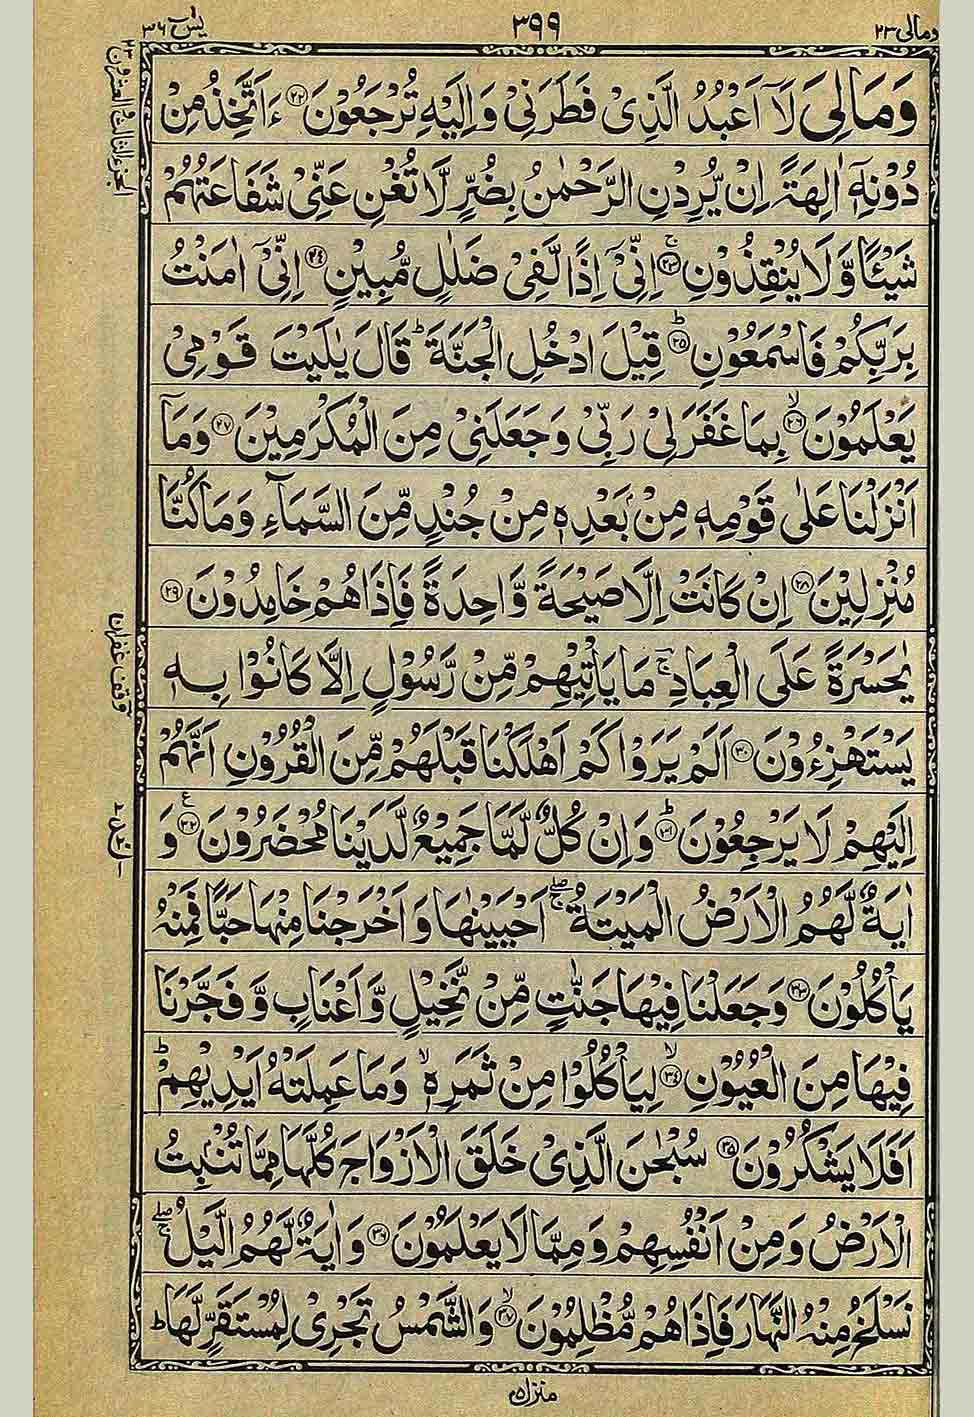 ومالی ٢٣
٣٩٩
یٰسٓ ٣٦
وَمَالِیَ لَاۤ اَعْبُدُ الَّذِیْ فَطَرَنِیْ وَ اِلَیْهِ تُرْجَعُوْنَ ﴿٢٢﴾ ءَاَتَّخِذُ مِنْ
دُوْنِهٖۤ اٰلِهَةً اِنْ یُّرِدْنِ الرَّحْمٰنُ بِضُرٍّ لَّا تُغْنِ عَنِّیْ شَفَاعَتُهُمْ
شَیْـًٔا وَّ لَا یُنْقِذُوْنِ ۚ﴿٢٣﴾ اِنِّیْۤ اِذًا لَّفِیْ ضَلٰلٍ مُّبِیْنٍ ﴿٢٤﴾ اِنِّیْۤ اٰمَنْتُ
بِرَبِّكُمْ فَاسْمَعُوْنِ ؕ﴿٢٥﴾ قِیْلَ ادْخُلِ الْجَنَّةَ ؕ قَالَ یٰلَیْتَ قَوْمِیْ
یَعْلَمُوْنَ ۙ﴿٢٦﴾ بِمَا غَفَرَ لِیْ رَبِّیْ وَ جَعَلَنِیْ مِنَ الْمُكْرَمِیْنَ ﴿٢٧﴾ وَ مَاۤ
اَنْزَلْنَا عَلٰی قَوْمِهٖ مِنْۢ بَعْدِهٖ مِنْ جُنْدٍ مِّنَ السَّمَآءِ وَ مَا كُنَّا
مُنْزِلِیْنَ ﴿٢٨﴾ اِنْ كَانَتْ اِلَّا صَیْحَةً وَّاحِدَةً فَاِذَا هُمْ خٰمِدُوْنَ ﴿٢٩﴾
یٰحَسْرَةً عَلَی الْعِبَادِ ۚ مَا یَاْتِیْهِمْ مِّنْ رَّسُوْلٍ اِلَّا كَانُوْا بِهٖ
یَسْتَهْزِءُوْنَ ﴿٣٠﴾ اَلَمْ یَرَوْا كَمْ اَهْلَكْنَا قَبْلَهُمْ مِّنَ الْقُرُوْنِ اَنَّهُمْ
اِلَیْهِمْ لَا یَرْجِعُوْنَ ؕ﴿٣١﴾ وَ اِنْ كُلٌّ لَّمَّا جَمِیْعٌ لَّدَیْنَا مُحْضَرُوْنَ ﴿٣٢﴾ وَ
اٰیَةٌ لَّهُمُ الْاَرْضُ الْمَیْتَةُ ۖۚ اَحْیَیْنٰهَا وَ اَخْرَجْنَا مِنْهَا حَبًّا فَمِنْهُ
یَاْكُلُوْنَ ﴿٣٣﴾ وَ جَعَلْنَا فِیْهَا جَنّٰتٍ مِّنْ نَّخِیْلٍ وَّ اَعْنَابٍ وَّ فَجَّرْنَا
فِیْهَا مِنَ الْعُیُوْنِ ۙ﴿٣٤﴾ لِیَاْكُلُوْا مِنْ ثَمَرِهٖ ۙ وَ مَا عَمِلَتْهُ اَیْدِیْهِمْ ؕ
اَفَلَا یَشْكُرُوْنَ ﴿٣٥﴾ سُبْحٰنَ الَّذِیْ خَلَقَ الْاَزْوَاجَ كُلَّهَا مِمَّا تُنْۢبِتُ
الْاَرْضُ وَ مِنْ اَنْفُسِهِمْ وَ مِمَّا لَا یَعْلَمُوْنَ ﴿٣٦﴾ وَ اٰیَةٌ لَّهُمُ الَّیْلُ ۖۚ
نَسْلَخُ مِنْهُ النَّهَارَ فَاِذَا هُمْ مُّظْلِمُوْنَ ۙ﴿٣٧﴾ وَ الشَّمْسُ تَجْرِیْ لِمُسْتَقَرٍّ لَّهَا ؕ
منزل ٥
الجزء الثالث والعشرون ٢٣
وقف غفران